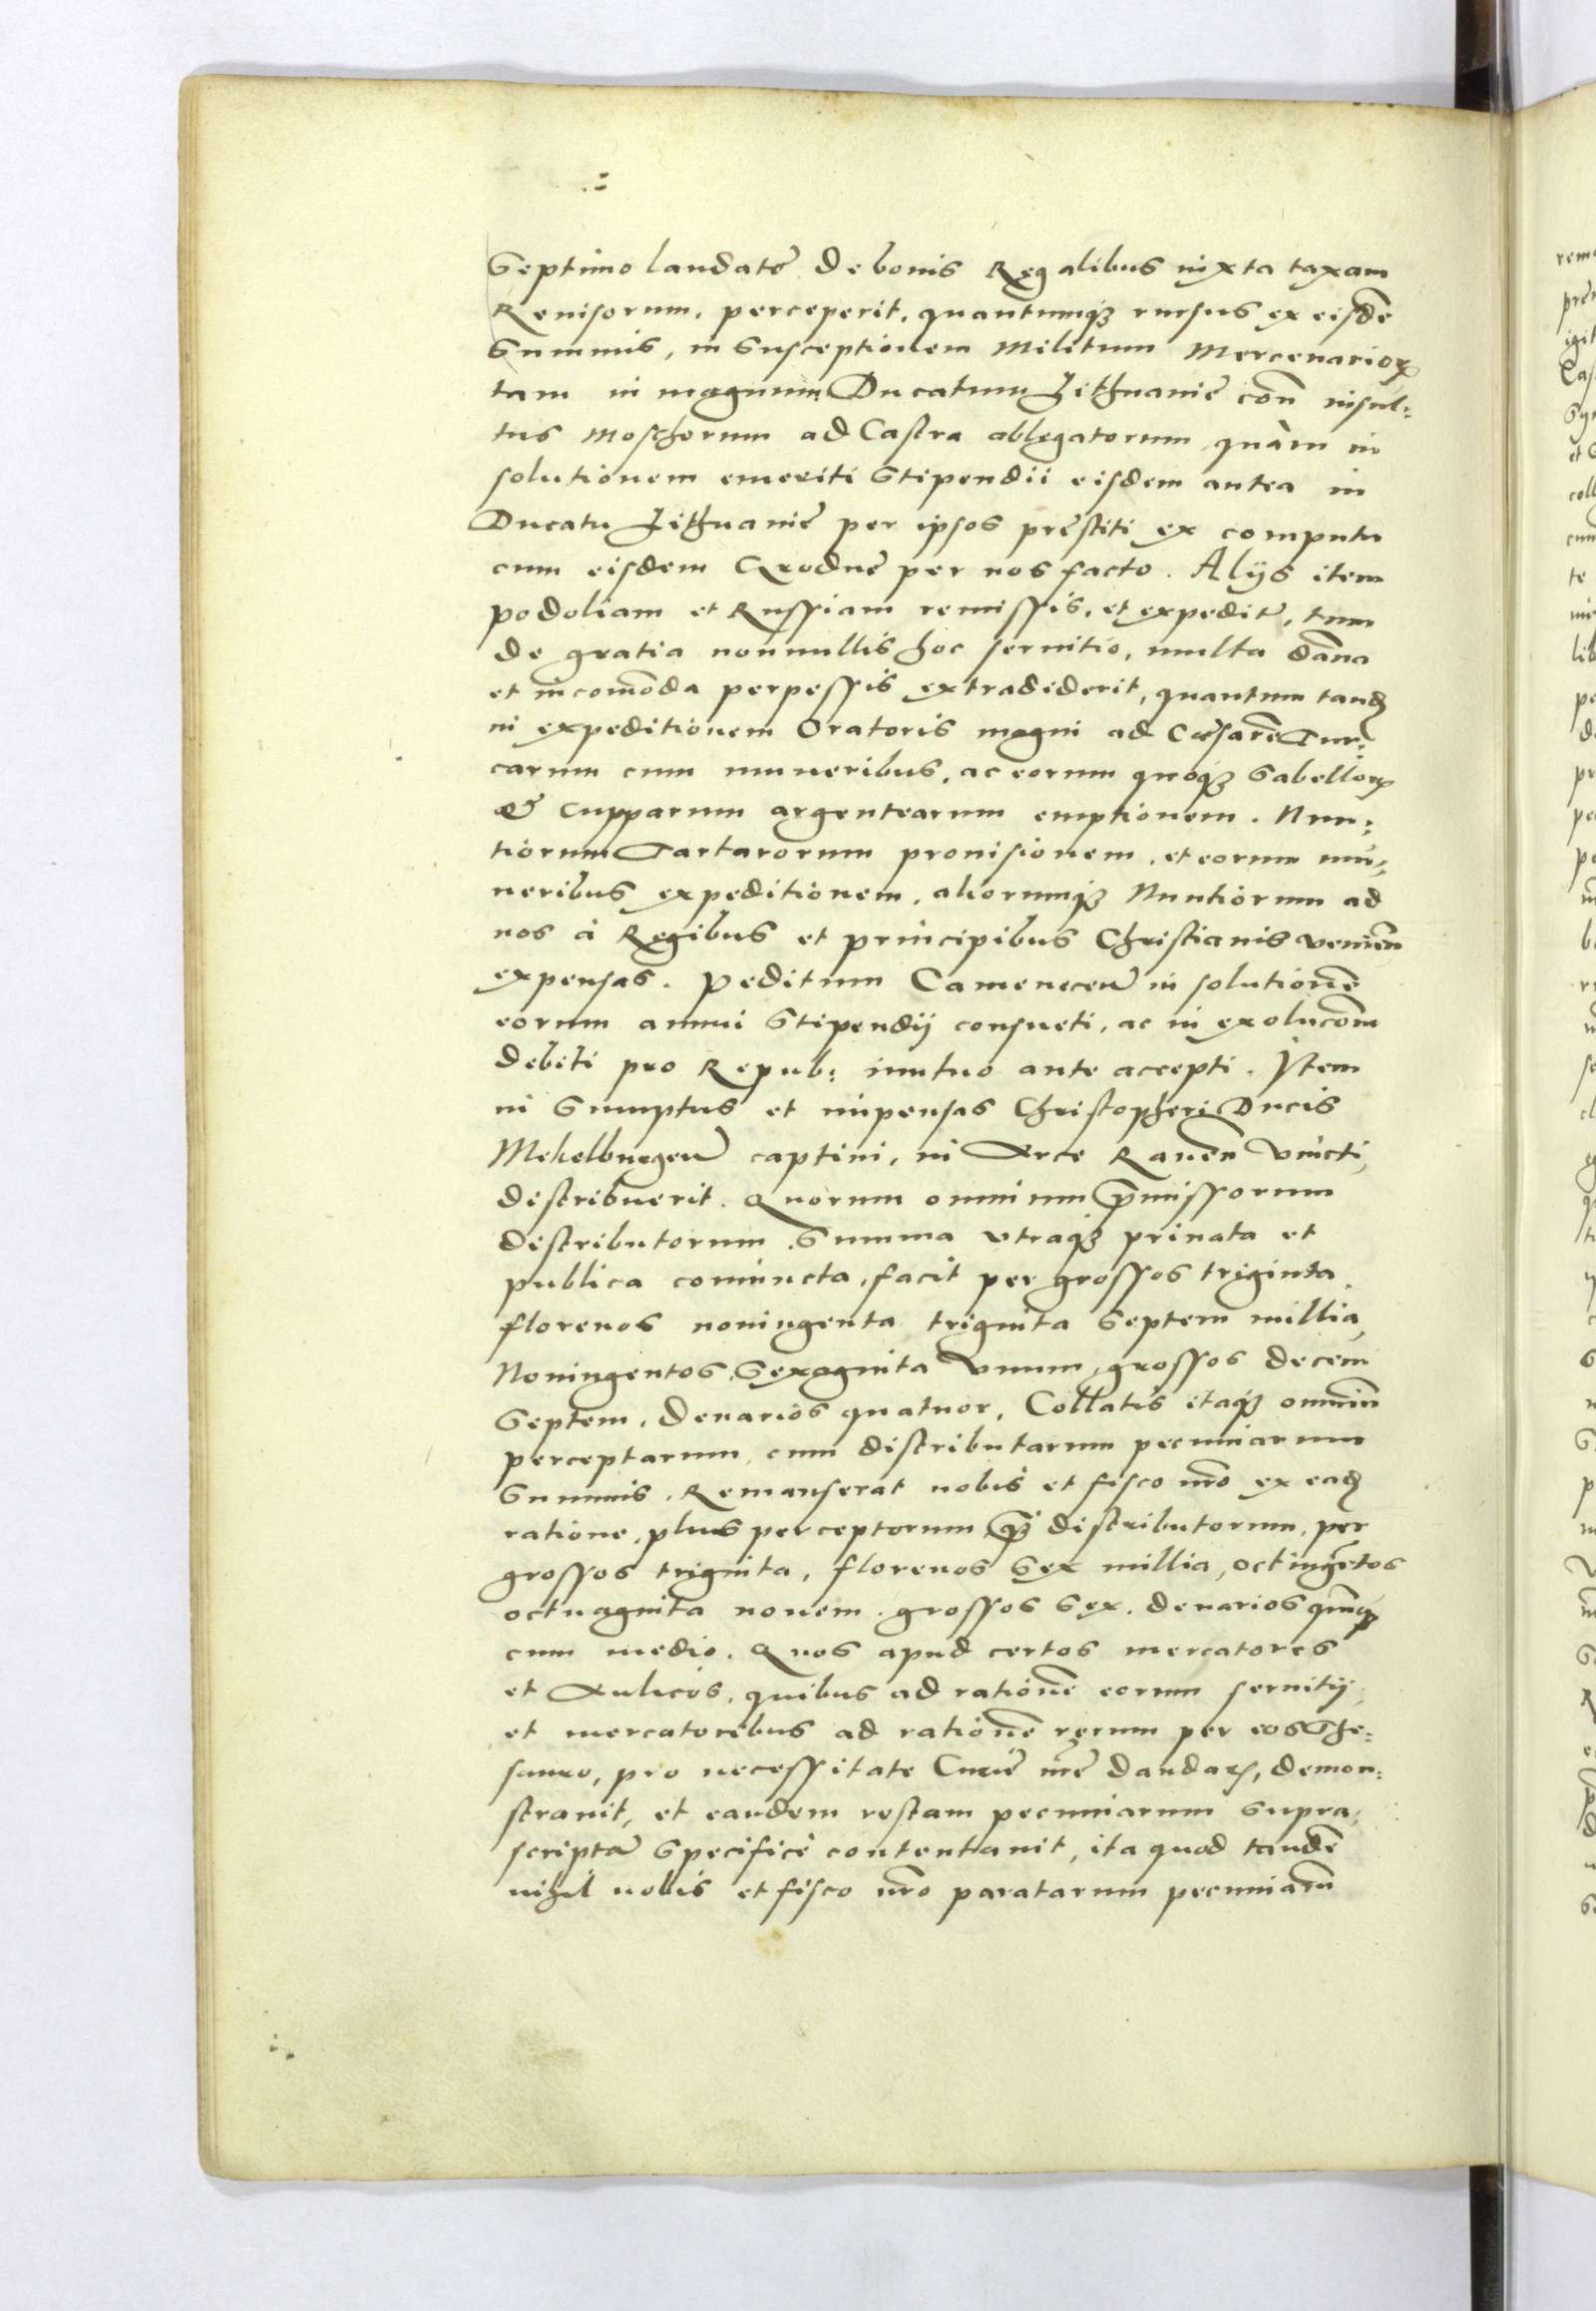 Septimo laudatę de bonis Regalibus iuxta taxam
Reuisorum, perceperit, quantumq; rursus ex eisdē
Summis, in Susceptionem Militum Mercenarioꝝ
tam in magnum Ducatum Lithuanię con̄ insul:
tus Moschorum ad Castra ablegatorum quàm in
solutionem emeriti Stipendii eisdem antea in
Ducatu Lithuanię per ipsos pręstiti ex computu
cum eisdem Grodnę per nos facto. Alijs item
podoliam et Russiam remissis, et expedit̃, tum
de gratia nonnullis hoc seruitio, multa dāna
et incom̄oda perpessis extradiderit, quantum tandē
in expeditionem Oratoris magni ad Cæsarē Tur:
carum cum muneribus, ac eorum quoq; Sabelloꝝ
& Cupparum argentearum emptionem. Nun:
tiorum Tartarorum prouisionem, et eorum mu:
neribus expeditionem, aliorumq; Nuntiorum ad
nos à Regibus et principibus Christianis venien̄
expensas. Peditum Camenecen̄ in solutionē
eorum annui Stipendij consueti, ac in exolucōm
debiti pro Repub: mutuo ante accepti. Item
in Sumptus et impensas Christopheri Ducis
Mekelburgen̄ captiui, in Arce Rauen̄ vincti,
distribuerit. Quorum omnium p̄missorum
distributorum Summa vtraq; priuata et
publica coniuncta, facit per grossos triginta
florenos noningenta triginta Septem millia,
Noningentos, Sexaginta vnum, grossos decem
Septem, denarios quatuor, Collatis itaq; omniū
perceptarum, cum distributarum pecuniarum
Summis, Remanserat nobis et fisco nr̄o ex eadē
ratione, plus perceptorum q̄; distributorum, per
grossos triginta, florenos Sex millia, octingētos
octuaginta nouem, grossos Sex, denarios quīq;
cum medio. Quos apud certos mercatores
et Aulicos, quibus ad rationē eorum seruitij,
et mercatoribus ad rationē rerum per eos The:
sauro, pro necessitate Curię nr̄ę dandaꝝ, demon:
strauit, et eandem restam pecuniarum Supra,
scriptā Specificè contentauit, ita quod tandē
nihil nobis et fisco nr̄o paratarum pecuniarū